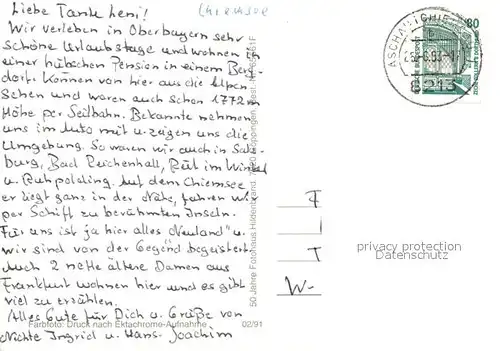 Liebe Tante Leni!
Wir verleben in Oberbayern sehr
schöne Urlaubstage und wohnen in
einer hübschen Pension in einem Berg-
dorf. Können von hier aus die Alpen
sehen und waren auch schon 1772 m
Höhe per Seilbahn. Bekannte nehmen
uns im Auto mit u. zeigen uns die
Umgebung. So waren wir auch in Salz-
burg, Bad Reichenhall, Reit im Winkel
u. Ruhpolding. Auf dem Chiemsee
er liegt ganz in der Nähe, fuhren wir
per Schiff zu berühmten Inseln.
Für uns ist ja hier alles "Neuland" u.
wir sind von der Gegend begeistert.
Auch 2 nette ältere Damen aus
Frankfurt wohnen hier und es gibt
viel zu erzählen.
Alles Gute für Dich u. Grüße von
Nichte Ingrid u. Hans-Joachim
Farbfoto: Druck nach Ektachrome-Aufnahme 02/91
50 Jahre Fotohaus Hildenbrand
80
ASCHAU I CHIE
8213
F
I
T
W-
privacy protection